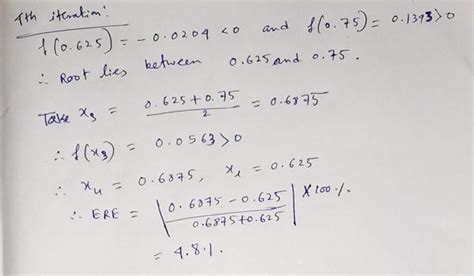 4th iteration:
f(0.625) = - 0.0204 < 0 and f(0.75) = 0.1393 > 0
∴ Root lies between 0.625 and 0.75.
Take x₃ = (0.625 + 0.75)/2 = 0.6875
∴ f(x₃) = 0.0563 > 0
∴ xᵤ = 0.6875, xₗ = 0.625
∴ ERE = |(0.6875 - 0.625)/(0.6875 + 0.625)| × 100 %
= 4.8 %.